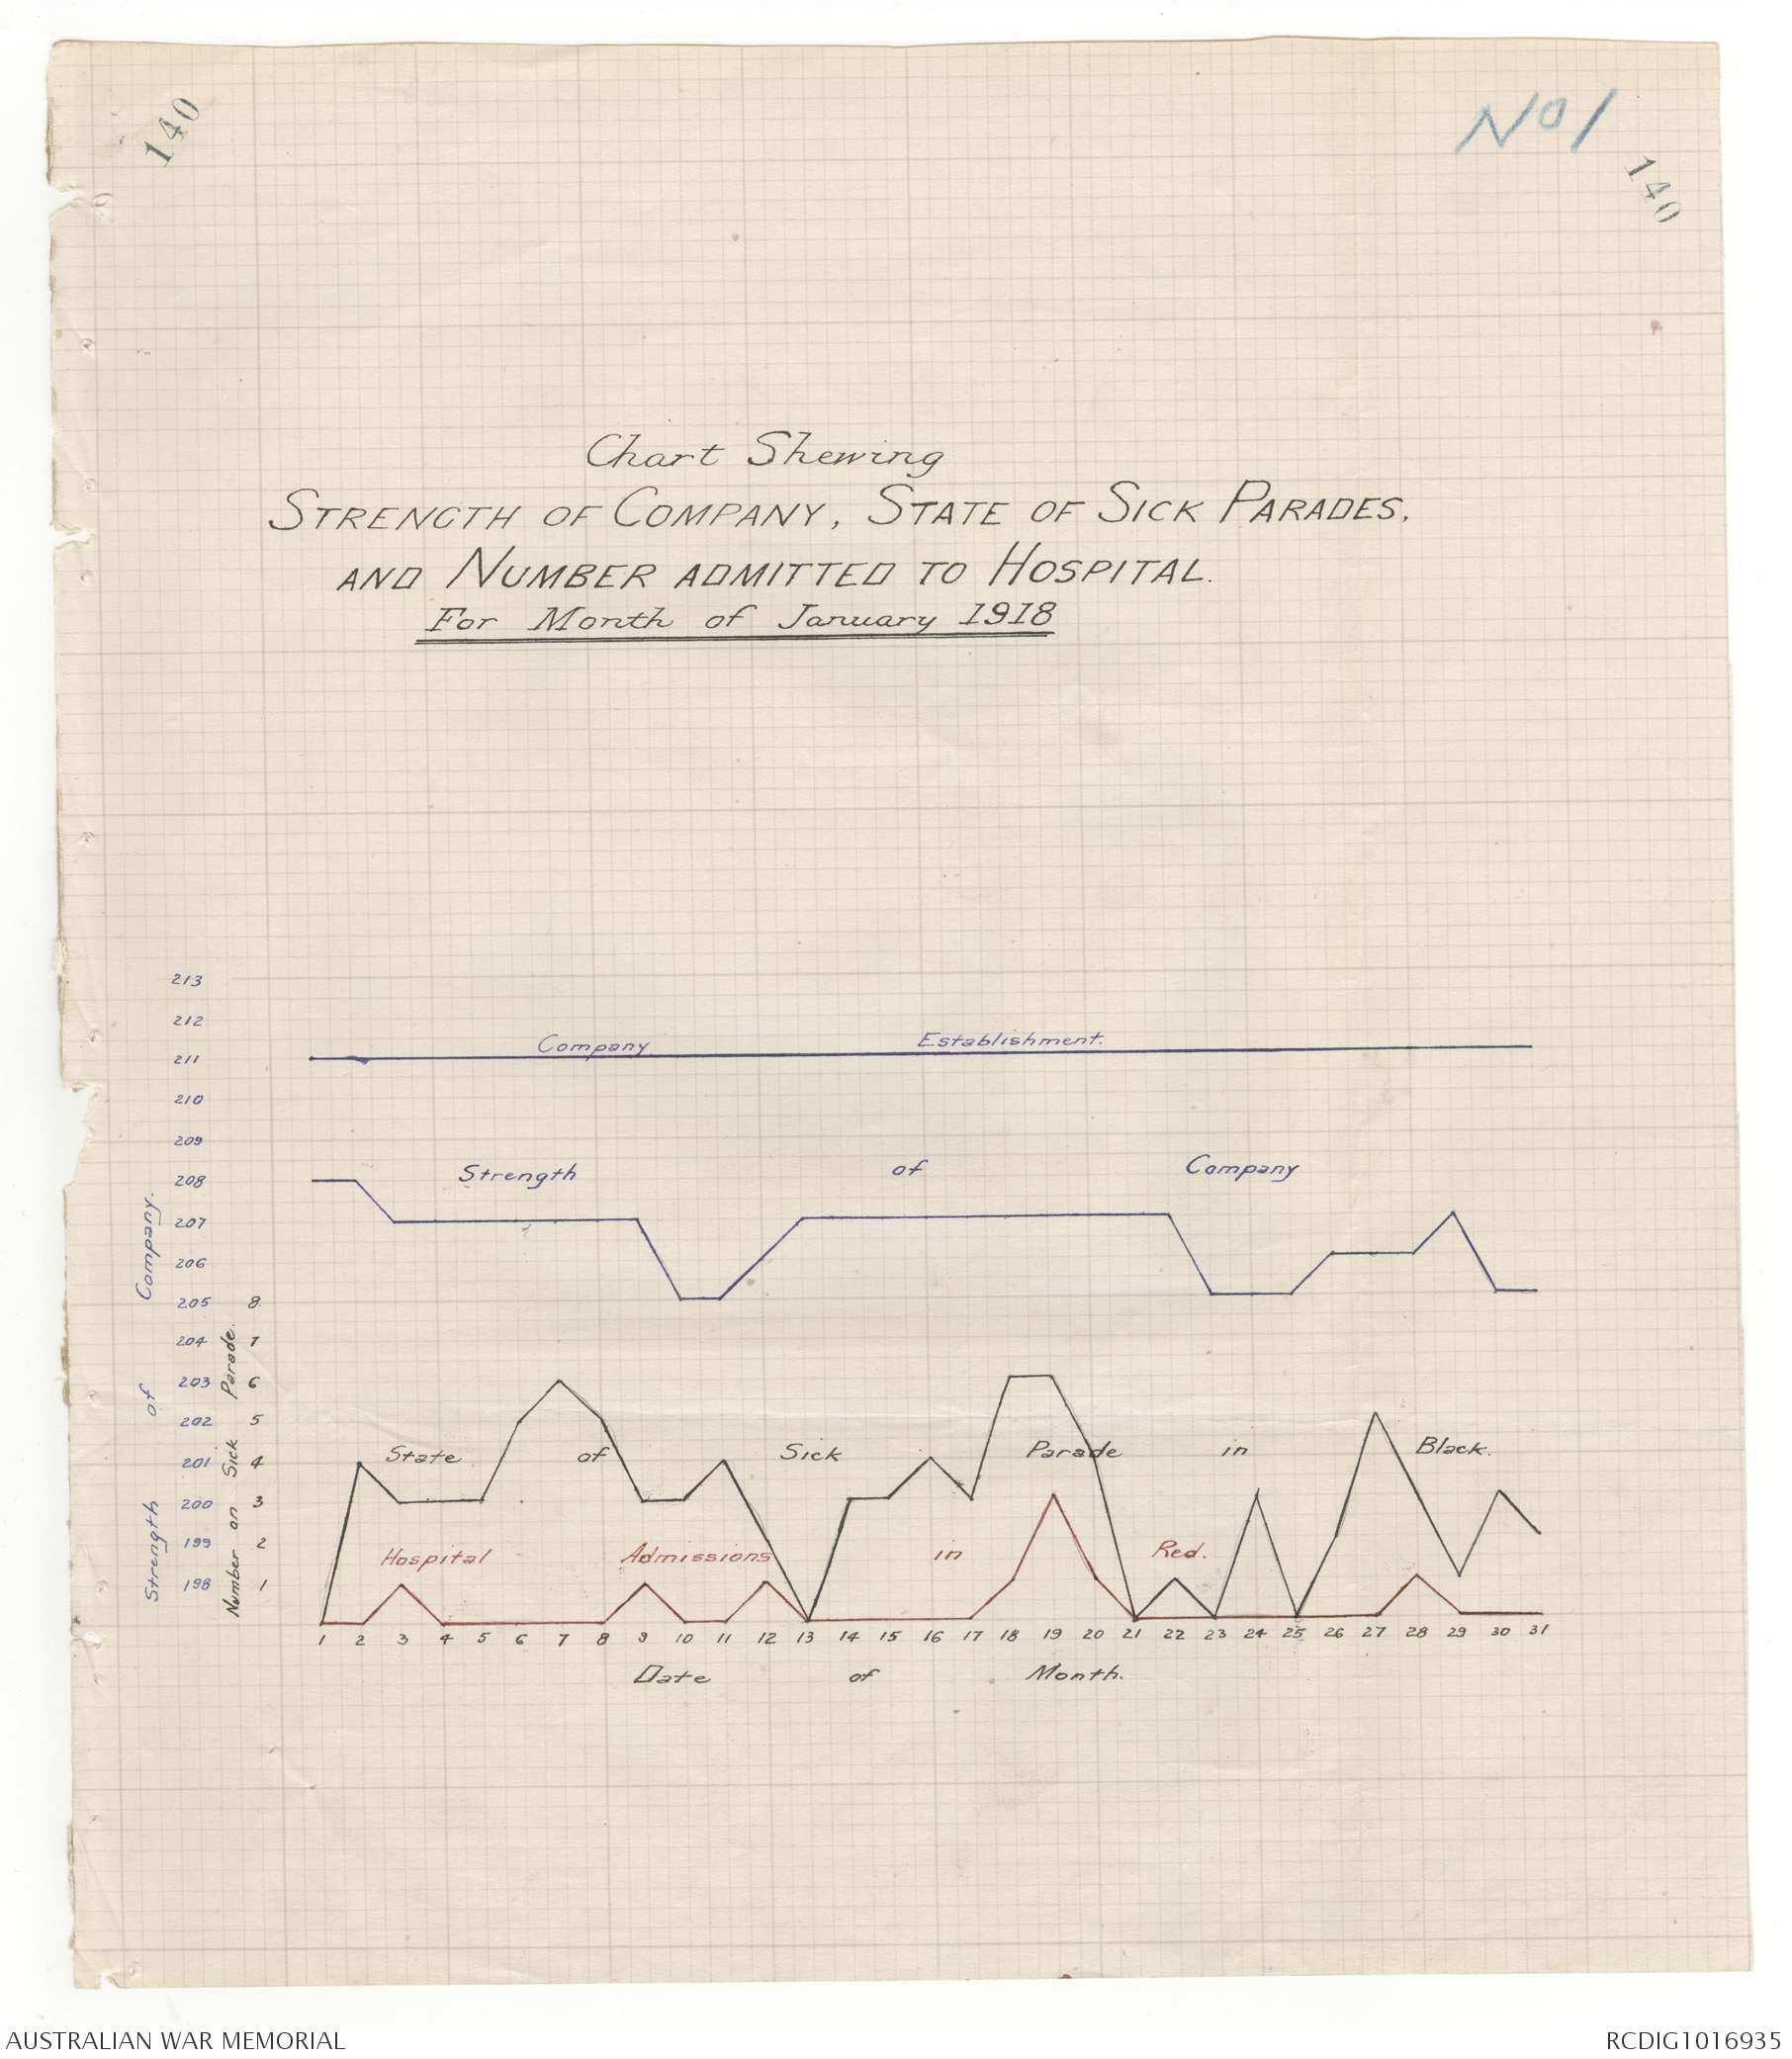 140
No 1
140
Chart Shewing
STRENGTH OF COMPANY, STATE OF SICK PARADES,
AND NUMBER ADMITTED TO HOSPITAL.
For Month of January 1918
213
212
211
210
209
208
207
206
205
204
203
202
201
200
199
198
Strength of Company.
8
7
6
5
4
3
2
1
Number on Sick Parade.
Company Establishment.
Strength of Company
State of Sick Parade in Black.
Hospital Admissions in Red.
1 2 3 4 5 6 7 8 9 10 11 12 13 14 15 16 17 18 19 20 21 22 23 24 25 26 27 28 29 30 31
Date of Month.
AUSTRALIAN WAR MEMORIAL
RCDIG1016935